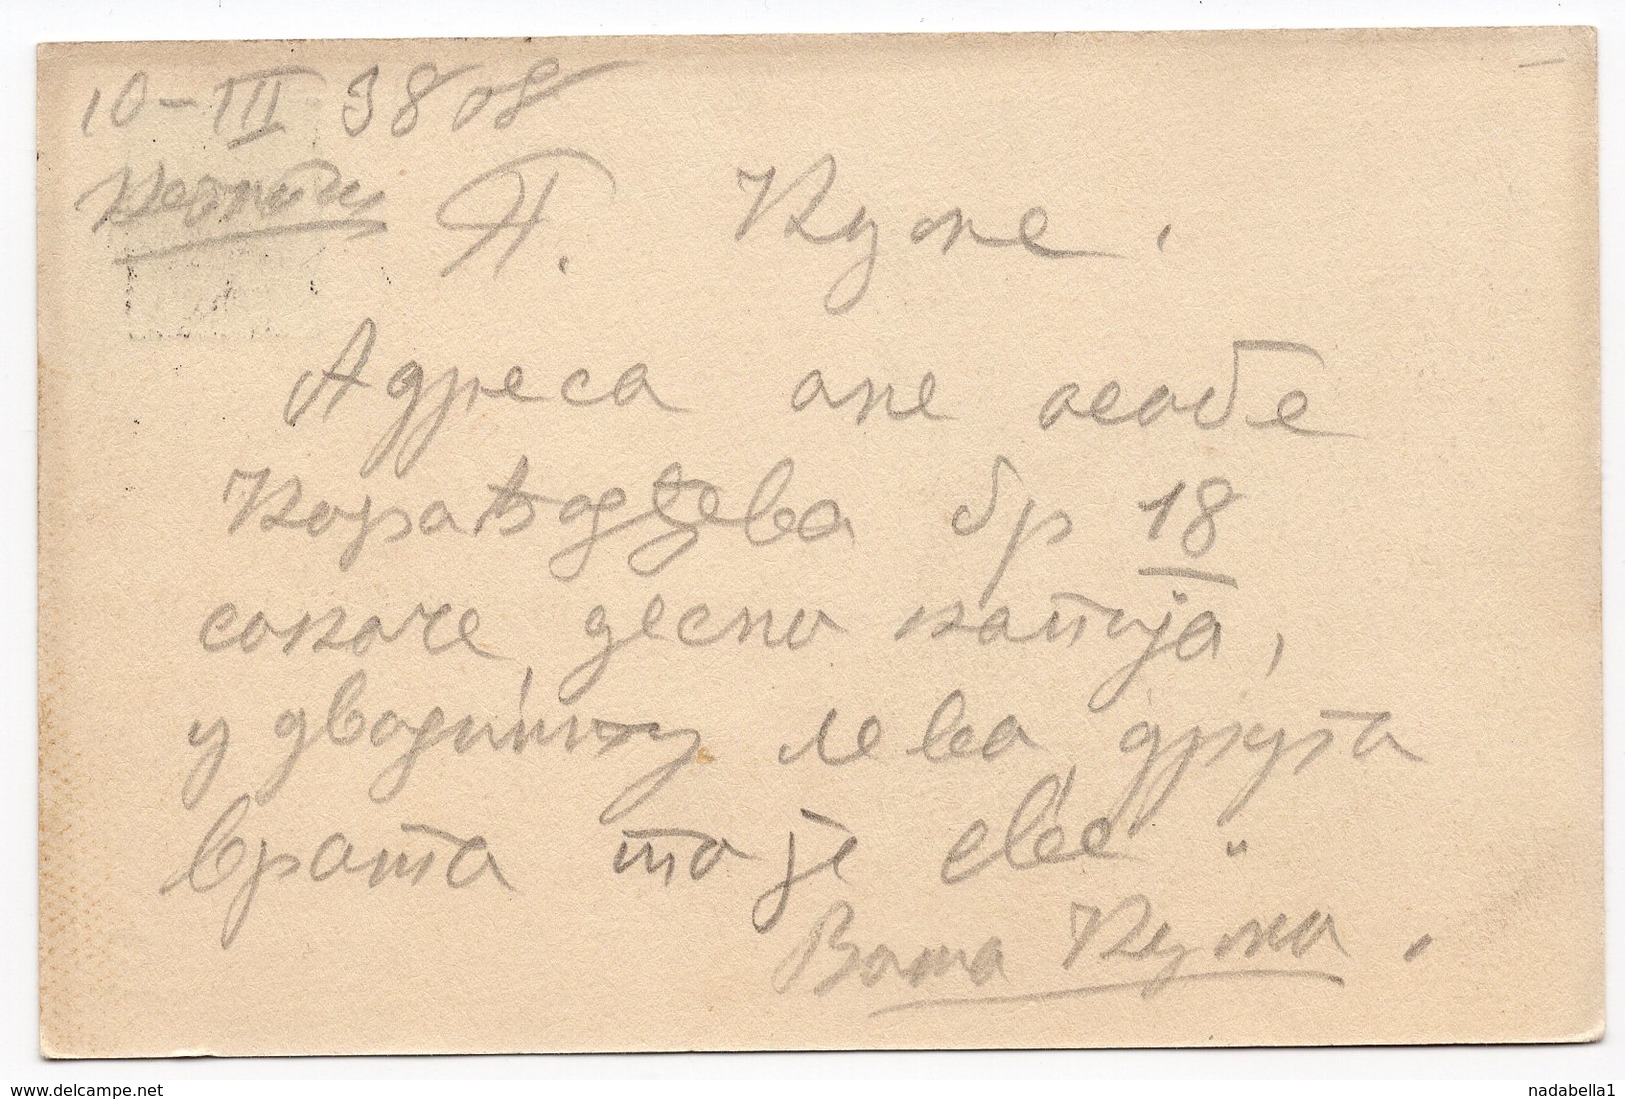 10-III 38 год
П. Куме.
Адреса оне особе
Карађођева бр 18
сокаче, десно капија,
у дворишту лева, друга
врата то је све.
Ваша Кума.
delcampe.net
nadabella1